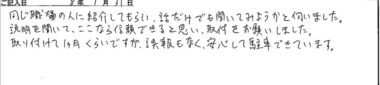 ご記入日 8年 1月31日
同じ職場の人に紹介してもらい、話だけでも聞いてみようかと伺いました。
説明を聞いて、ここなら信頼できると思い、取付をお願いしました。
取り付けて1ヶ月くらいですが、誤報もなく、安心して駐車できています。